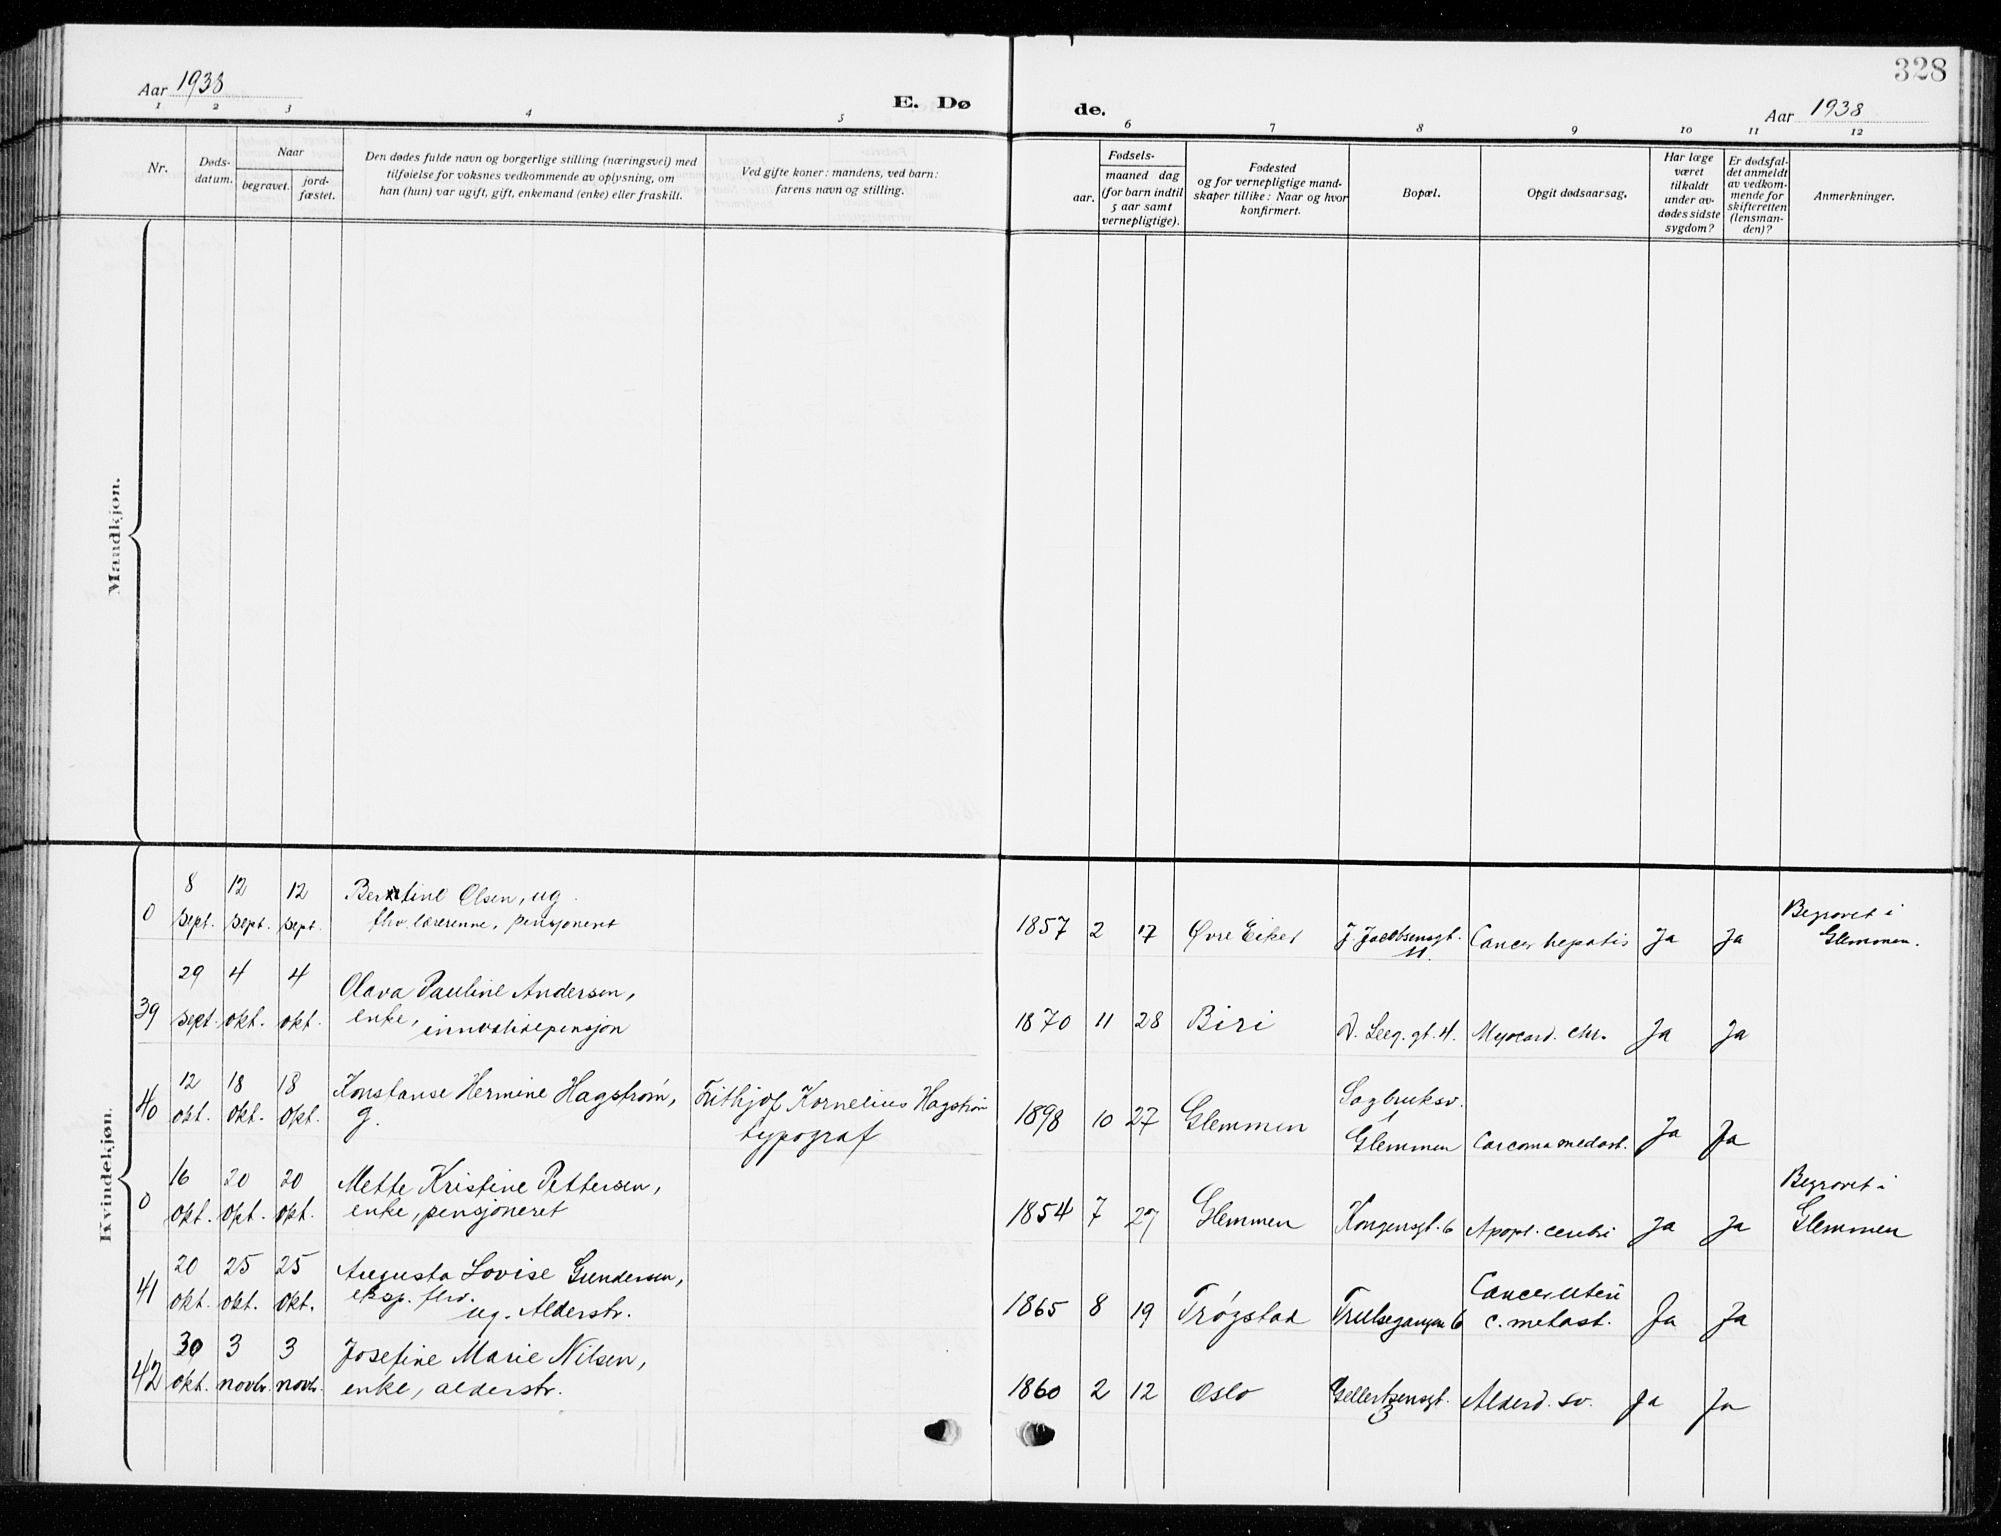 328
Aar 1938
E. Døde.
Aar 1938
1 2 3 4 5 6 7 8 9 10 11 12
Nr.
Døds-
datum.
Naar
begravet.
jord-
fæstet.
Den dødes fulde navn og borgerlige stilling (næringsvei) med
tilføielse for voksnes vedkommende av oplysning, om
han (hun) var ugift, gift, enkemand (enke) eller fraskilt.
Ved gifte koner: mandens, ved barn:
farens navn og stilling.
Fødsels-
aar.
maaned dag
(for barn indtil
5 aar samt
vernepligtige).
Fødested
og for vernepligtige mand-
skaper tillike: Naar og hvor
konfirmert.
Bopæl.
Opgit dødsaarsag.
Har læge
været
tilkaldt
under av-
dødes sidste
sygdom?
Er dødsfal-
det anmeldt
av vedkom-
mende for
skifteretten
(lensman-
den)?
Anmerkninger.
Mandkjøn.
Kvindekjøn.
0
8
sept.
12
sept.
12
sept.
Berntine Olsen, ug.
fhv. lærerinne, pensjoneret
1857 2 17 Øvre Eiker
J. Jacobsensgt.
11.
Cancer hepatis Ja Ja
Begravet i
Glemmen.
39
29
sept.
4
okt.
4
okt.
Olava Pauline Andersen,
enke,
innvalidepensjon
1870 11 28 Biri
gt. 4. Myocard. chr. Ja Ja
40
12
okt.
18
okt.
18
okt.
Konstanse Hermine Hagstrøm,
g.
Frithjof Kornelius Hagstrøm
typograf
1898 10 27 Glemmen
Sagbruksv.
1
Glemmen
Ja Ja
0
16
okt.
20
okt.
20
okt.
Mette Kristine Pettersen,
enke, pensjoneret
1854 7 27 Glemmen Kongensgt. 6 Apopl. cerebri Ja Ja
Begravet i
Glemmen
41
20
okt.
25
okt.
25
okt.
Augusta Lovise Gundersen,
eksp. fhv.
ug. Alderstr.
1865 8 19 Trøgstad Trulsegangen 6
Cancer uteri
c. metast.
Ja Ja
42
30
okt.
3
novbr.
3
novbr.
Josefine Marie Nilsen,
enke, alderstr.
1860 2 12 Oslo
Gellertsensgt.
3
Alderd. sv. Ja Ja